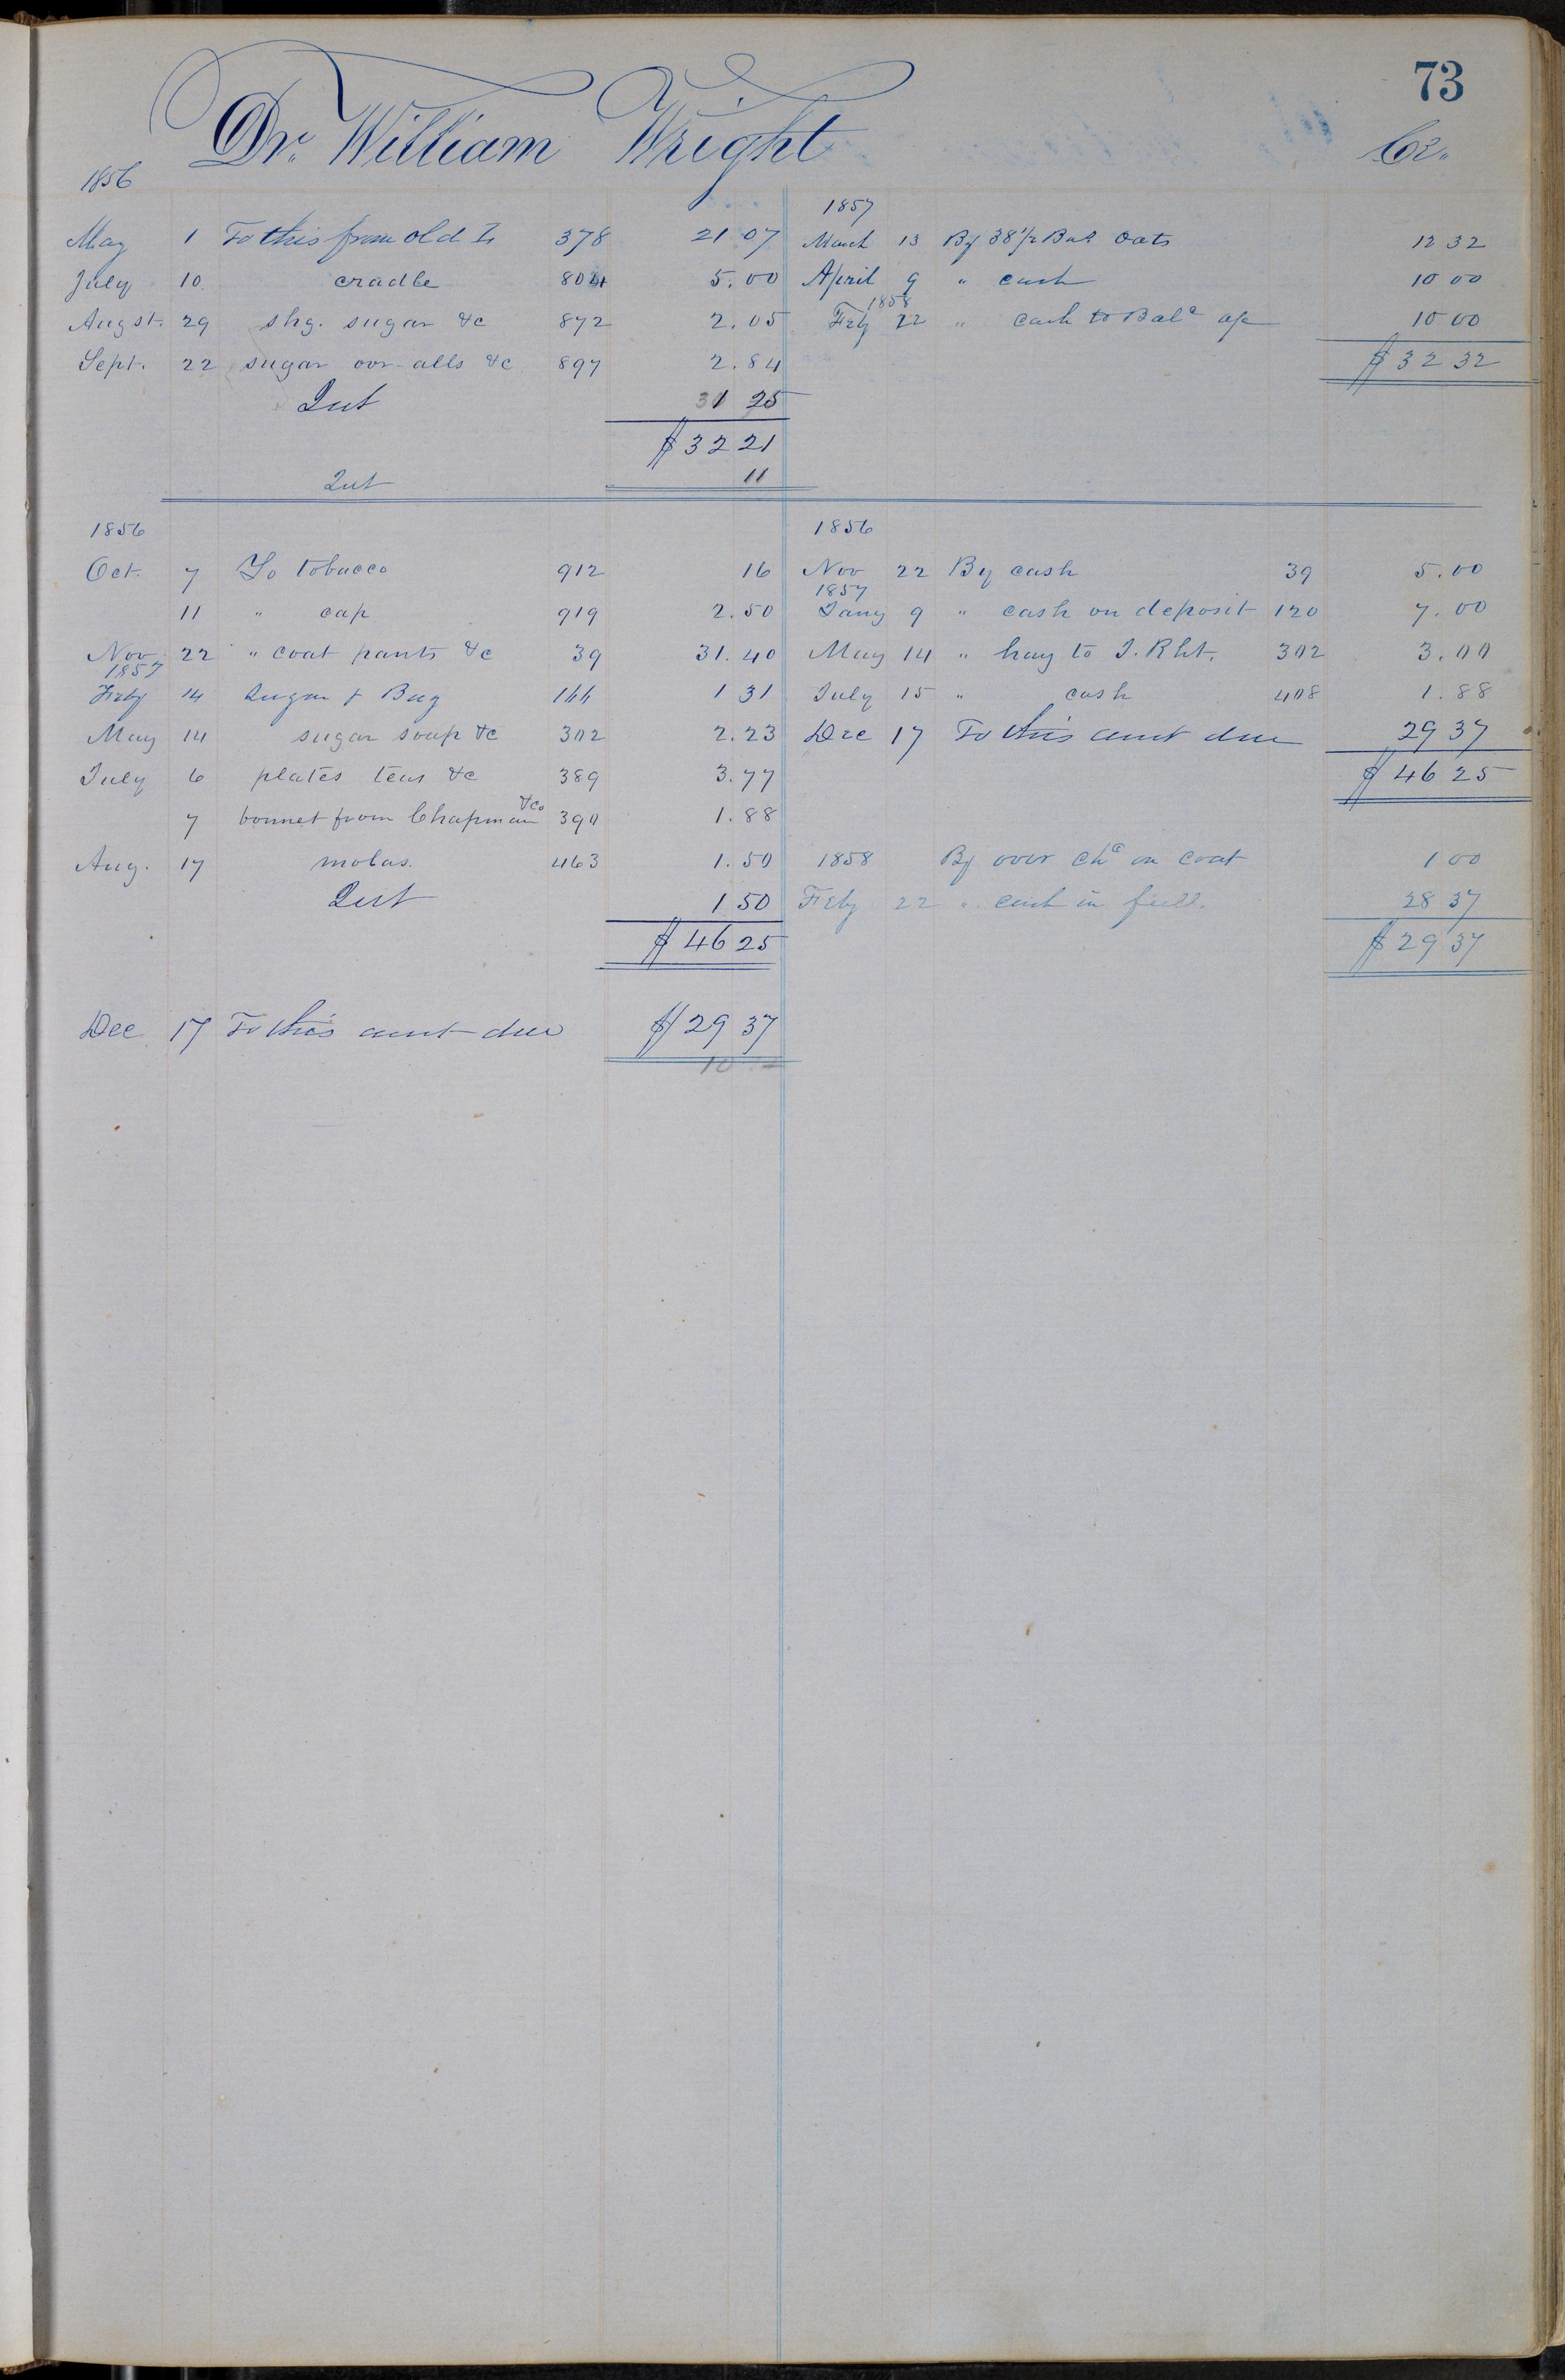 73
Dr. William Wright Cr.
1856
May 1 To this from old L 378 21 07
July 10 cradle 804 5.00
Augst. 29 shg. sugar &c 872 2.05
Sept. 22 sugar ovr-alls &c 897 2.84
Int 1 25
$32 21
Int 11
1857
March 13 By 38 1/2 Bus Oats 12 32
April 9 " cash 10 00
1858
Feby 22 " cash to Bal a/c 10 00
$32 32
1856
Oct. 7 To tobacco 912 16
11 " cap 919 2.50
Nov 22 " coat pants &c 39 31.40
1857
Feby 14 Sugar & Bag 166 1 31
May 14 sugar soap &c 302 2.23
July 6 plates teas &c 389 3.77
7 bonnet from Chapman &Co 390 1.88
Aug. 17 molas. 463 1.50
Int 1 50
$46 25
Dec 17 To this amt due $29 37
10
1856
Nov 22 By cash 39 5.00
1857
Jany 9 " cash on deposit 120 7.00
May 14 " hay to J. Rht. 302 3.00
July 15 " cash 408 1.88
Dec 17 To this amt due 29 37
$46 25
1858 By over chg on coat 1 00
Feby 22 " cash in full. 28 37
$29 37